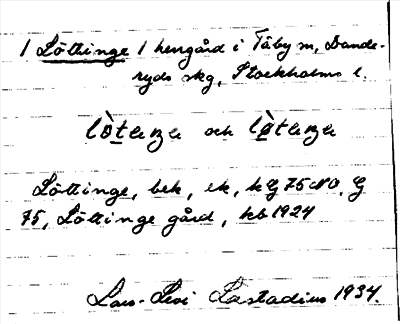 1 Löttinge 1 hengård i Täby sn, Dande-
ryds skg, Stockholms l.
lò̱tɩŋe och lò̱tɩŋe
Löttinge, bek, ek, kG 75 NO, G
75, Löttinge gård, kb 1924
Lars-Levi Læstadius 1934.